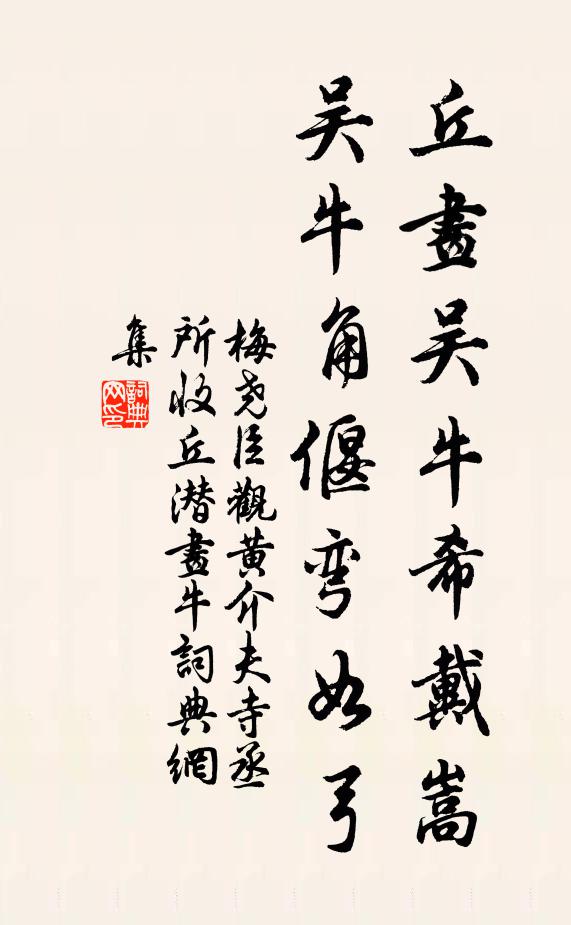 丘畫吴牛希戴嵩
吴牛角偃弯如弓
梅尧臣觀黄介夫寺丞
所收丘潜畫牛詞典網
集
詞典
网印